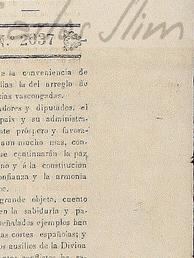 Carlos Slim
N. 2037
e la conveniencia de
lias la del arreglo de
cias vascongadas.
adores y diputados, el
pais y su administra-
ente próspero y favora-
aun mucho mas, con-
ue continuarán la paz,
no y á la constitución
onfianza y la armonía
grande objeto, cuento
en la sabiduría y pa-
señalados ejemplos han
as cortes españolas; y
os ausilios de la Divina